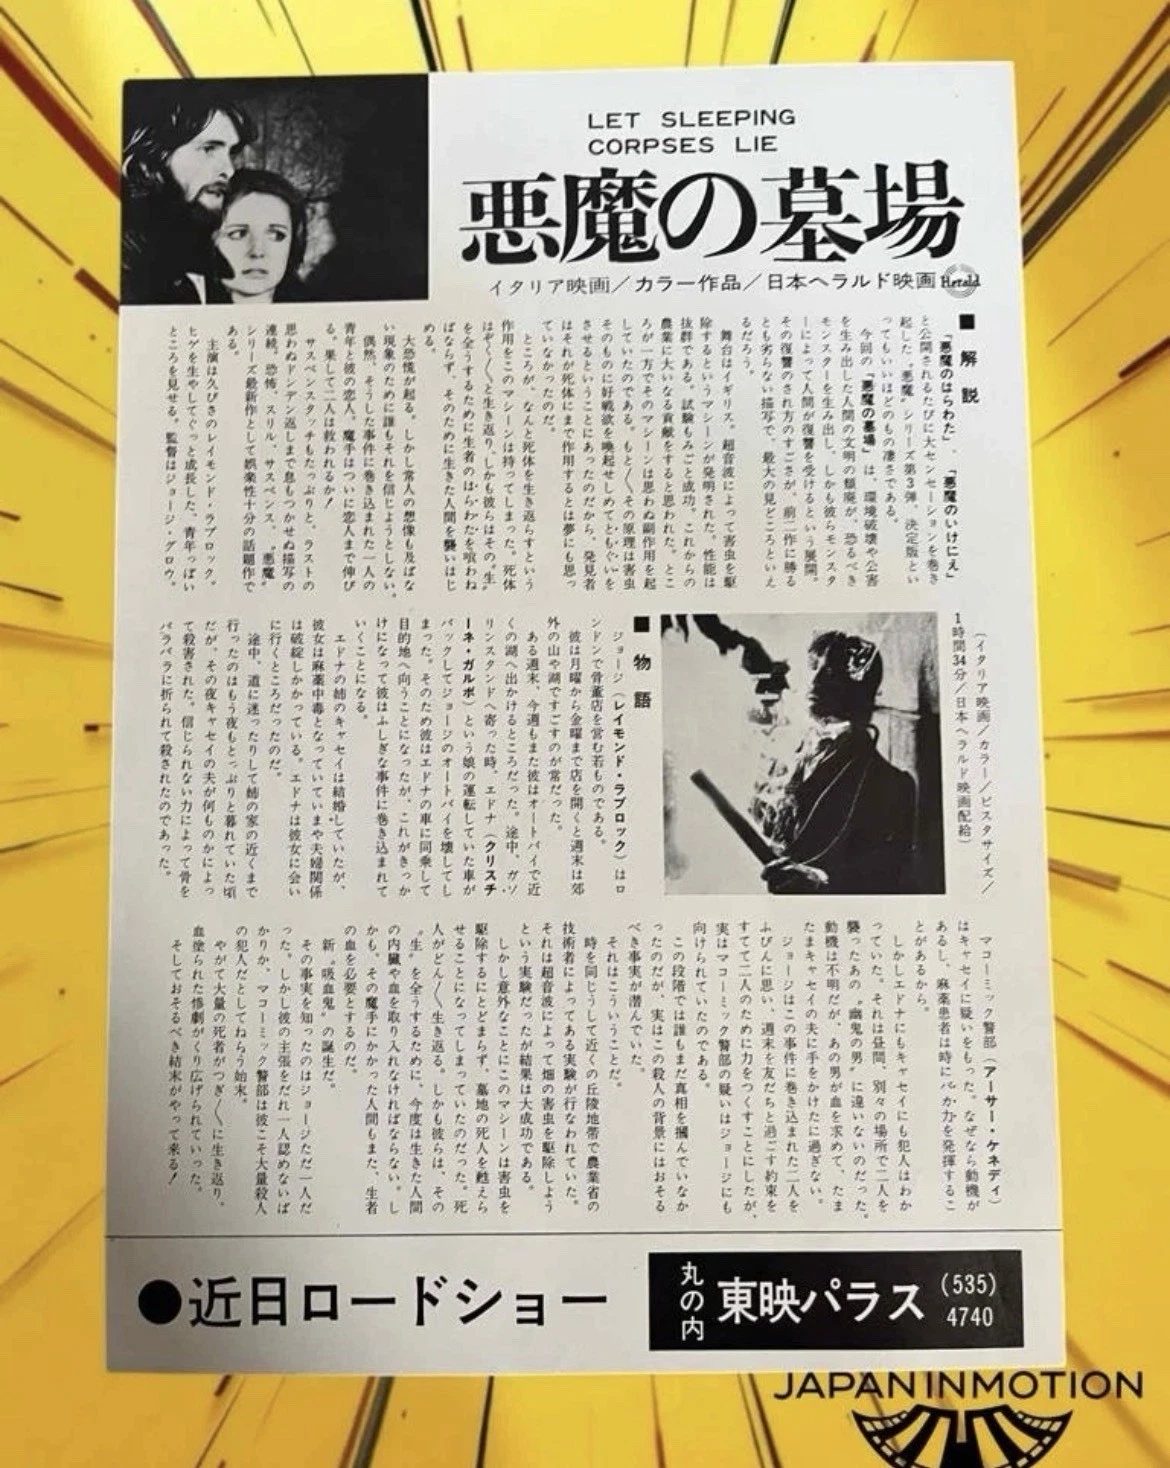 LET SLEEPING
CORPSES LIE
悪魔の墓場
イタリア映画／カラー作品／日本ヘラルド映画 Herald
■解説
「悪魔のはらわた」「悪魔のいけにえ」
と公開されるたびに大センセーションを巻き
起した〝悪魔〟シリーズ第3弾、決定版とい
ってもいいほどのもの凄さである。
今回の「悪魔の墓場」は、環境破壊や公害
を生み出した人間の文明の頽廃が、恐るべき
モンスターを生み出し、しかも彼らモンスタ
ーによって人間が復讐を受けるという展開。
その復讐のされ方のすごさが、前二作に勝る
とも劣らない描写で、最大の見どころといえ
るだろう。
舞台はイギリス。超音波によって害虫を駆
除するというマシーンが発明された。性能は
抜群である。試験もみごと成功、これからの
農業に大いなる貢献をすると思われた。とこ
ろが一方でそのマシーンは思わぬ副作用を起
していたのである。もと〱その原理は害虫
そのものに好戦欲を喚起せしめてともぐいを
させるということにあったのだから、発見者
はそれが死体にまで作用するとは夢にも思っ
ていなかったのだ。
ところが、なんと死体を生き返らすという
作用をこのマシーンは持ってしまった。死体
はぞく〱と生き返り、しかも彼らはその〝生〟
を全うするために生者のはらわたを喰わね
ばならず、そのために生きた人間を襲いはじ
める。
大恐慌が起る。しかし常人の想像も及ばな
い現象のために誰もそれを信じようとしない。
偶然、そうした事件に巻き込まれた一人の
青年と彼の恋人。魔手はついに恋人まで伸び
る。果して二人は救われるか！
サスペンスタッチもたっぷりと、ラストの
思わぬドンデン返しまで息もつかせぬ描写の
連続、恐怖、スリル、サスペンス、〝悪魔〟
シリーズ最新作として娯楽性十分の話題作で
ある。
主演は久びさのレイモンド・ラブロック。
ヒゲを生やしてぐっと成長した、青年っぽい
ところを見せる。監督はジョージ・グロウ。
（イタリア映画／カラー／ビスタサイズ／
1時間34分／日本ヘラルド映画配給）
■物語
ジョージ（レイモンド・ラブロック）はロ
ンドンで骨董店を営む若ものである。
彼は月曜から金曜まで店を開くと週末は郊
外の山や湖ですごすのが常だった。
ある週末、今週もまた彼はオートバイで近
くの湖へ出かけるところだった。途中、ガソ
リンスタンドへ寄った時、エドナ（クリスチ
ーネ・ガルボ）という娘の運転していた車が
バックしてジョージのオートバイを壊してし
まった。そのため彼はエドナの車に同乗して
目的地へ向うことになったが、これがきっか
けになって彼はふしぎな事件に巻き込まれて
いくことになる。
エドナの姉のキャセイは結婚していたが、
彼女は麻薬中毒となっていていまや夫婦関係
は破綻しかかっている。エドナは彼女に会い
に行くところだったのだ。
途中、道に迷ったりして姉の家の近くまで
行ったのはもう夜もとっぷりと暮れていた頃
だが、その夜キャセイの夫が何ものかによっ
て殺害された。信じられない力によって骨を
バラバラに折られて殺されたのであった。
マコーミック警部（アーサー・ケネディ）
はキャセイに疑いをもった。なぜなら動機が
あるし、麻薬患者は時にバカ力を発揮するこ
とがあるから。
しかしエドナにもキャセイにも犯人はわか
っていた。それは昼間、別々の場所で二人を
襲ったあの〝幽鬼の男〟に違いないのだった。
動機は不明だが、あの男が血を求めて、たま
たまキャセイの夫に手をかけたに過ぎない。
ジョージはこの事件に巻き込まれた二人を
ふびんに思い、週末を友だちと過ごす約束を
すてて二人のために力をつくすことにしたが、
実はマコーミック警部の疑いはジョージにも
向けられていたのである。
この段階では誰もまだ真相を摑んでいなか
ったのだが、実はこの殺人の背景にはおそる
べき事実が潜んでいた。
それはこういうことだ。
時を同じうして近くの丘陵地帯で農業省の
技術者によってある実験が行なわれていた。
それは超音波によって畑の害虫を駆除しよう
という実験だったが結果は大成功である。
しかし意外なことにこのマシーンは害虫を
駆除するにとどまらず、墓地の死人を甦えら
せることになってしまっていたのだった。死
人がどん〱生き返る。しかも彼らは、その
〝生〟を全うするために、今度は生きた人間
の内臓や血を取り入れなければならない。し
かも、その魔手にかかった人間もまた、生者
の血を必要とするのだ。
新〝吸血鬼〟の誕生だ。
その事実を知ったのはジョージただ一人だ
った。しかし彼の主張をだれ一人認めないば
かりか、マコーミック警部は彼こそ大量殺人
の犯人だとしてねらう始末。
やがて大量の死者がつぎ〱に生き返り、
血塗られた惨劇がくり広げられていった。
そしておそるべき結末がやって来る！
●近日ロードショー
丸の内 東映パラス (535) 4740
JAPANINMOTION